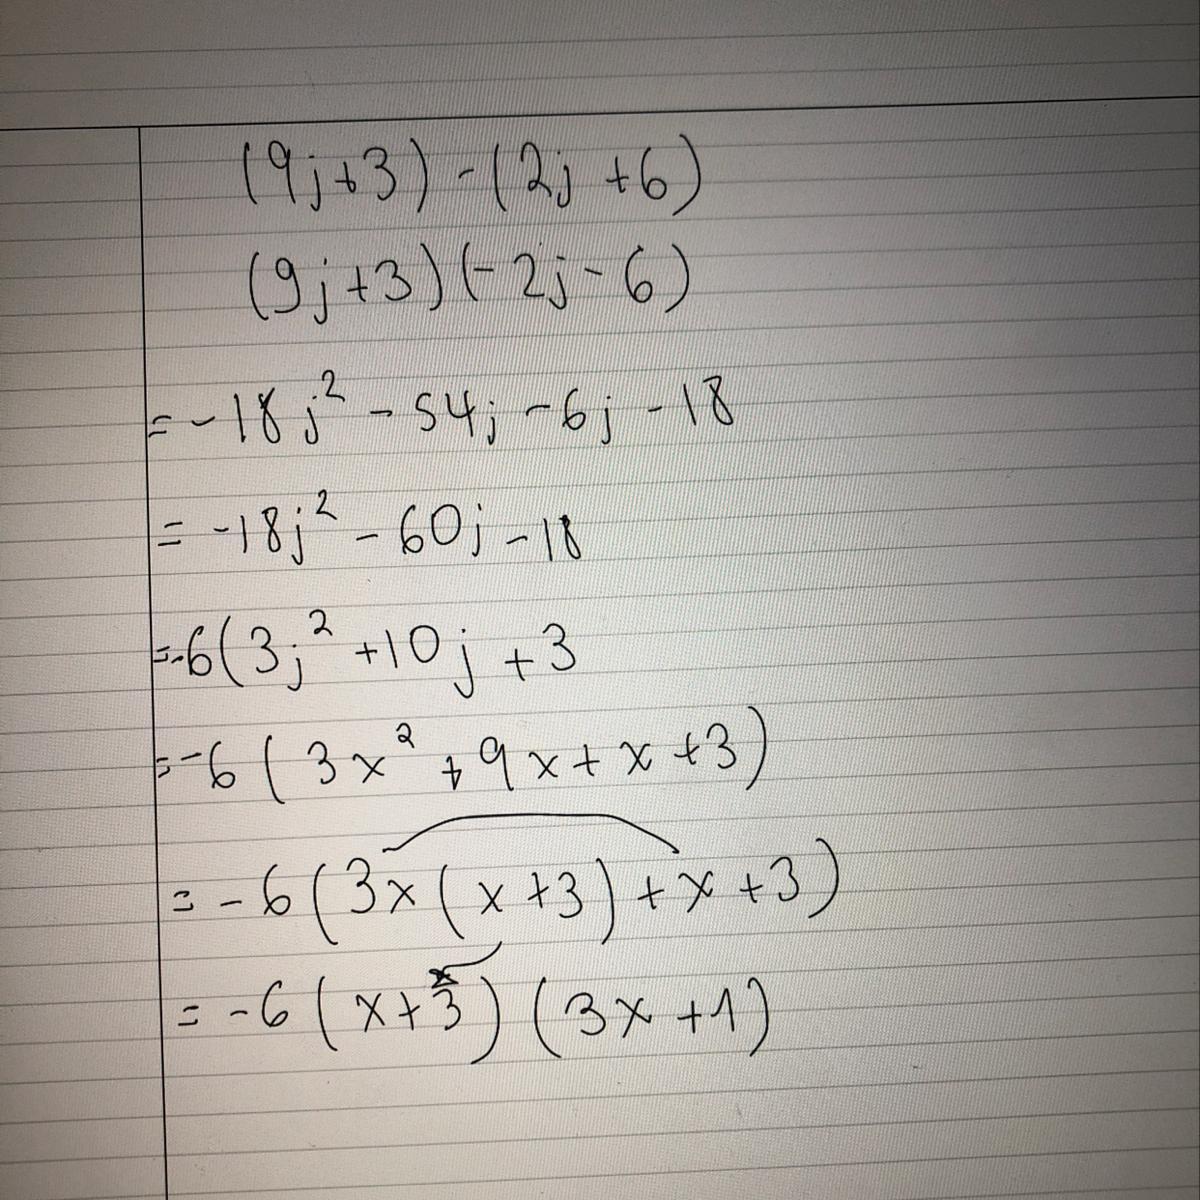 (9j+3)-(2j+6)
(9j+3)(-2j-6)
=-18j²-54j-6j-18
=-18j²-60j-18
=-6(3j²+10j+3
=-6(3x²+9x+x+3)
=-6(3x(x+3)+x+3)
=-6(x+3)(3x+1)